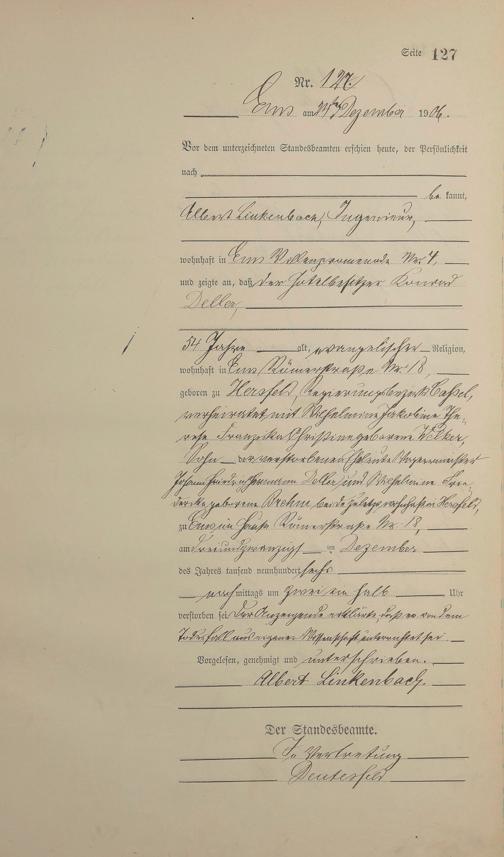 Seite 127
Nr. 127
Ems am 24ten Dezember 1906.
Vor dem unterzeichneten Standesbeamten erschien heute, der Persönlichkeit
nach
be kannt,
Albert Linkenbach, Ingenieur,
wohnhaft in Ems Villenpromenade Nr. 4,
und zeigte an, daß der Hotelbesitzer Konrad
Deller,
54 Jahre alt, evangelischer Religion,
wohnhaft in Ems Römerstraße Nr. 18,
geboren zu Hersfeld, Regierungsbezirk Cassel,
verheiratet mit Wilhelmine Jakobine The-
rese Franziska Christine geborene
Sohn der verstorbenen Eheleute
Johann Hermann Deller und Wilhelmine Frie-
derike geborene Brehm, beide zuletzt wohnhaft in Hersfeld,
zu Ems im Hause Römerstraße Nr. 18,
am dreiundzwanzigsten Dezember
des Jahres tausend neunhundert sechs
nachmittags um zwei ein halb Uhr
verstorben sei. Der Anzeigende erklärte, daß er von dem
Todesfall aus eigener Wissenschaft unterrichtet sei.
Vorgelesen, genehmigt und unterschrieben.
Albert Linkenbach.
Der Standesbeamte.
In Vertretung